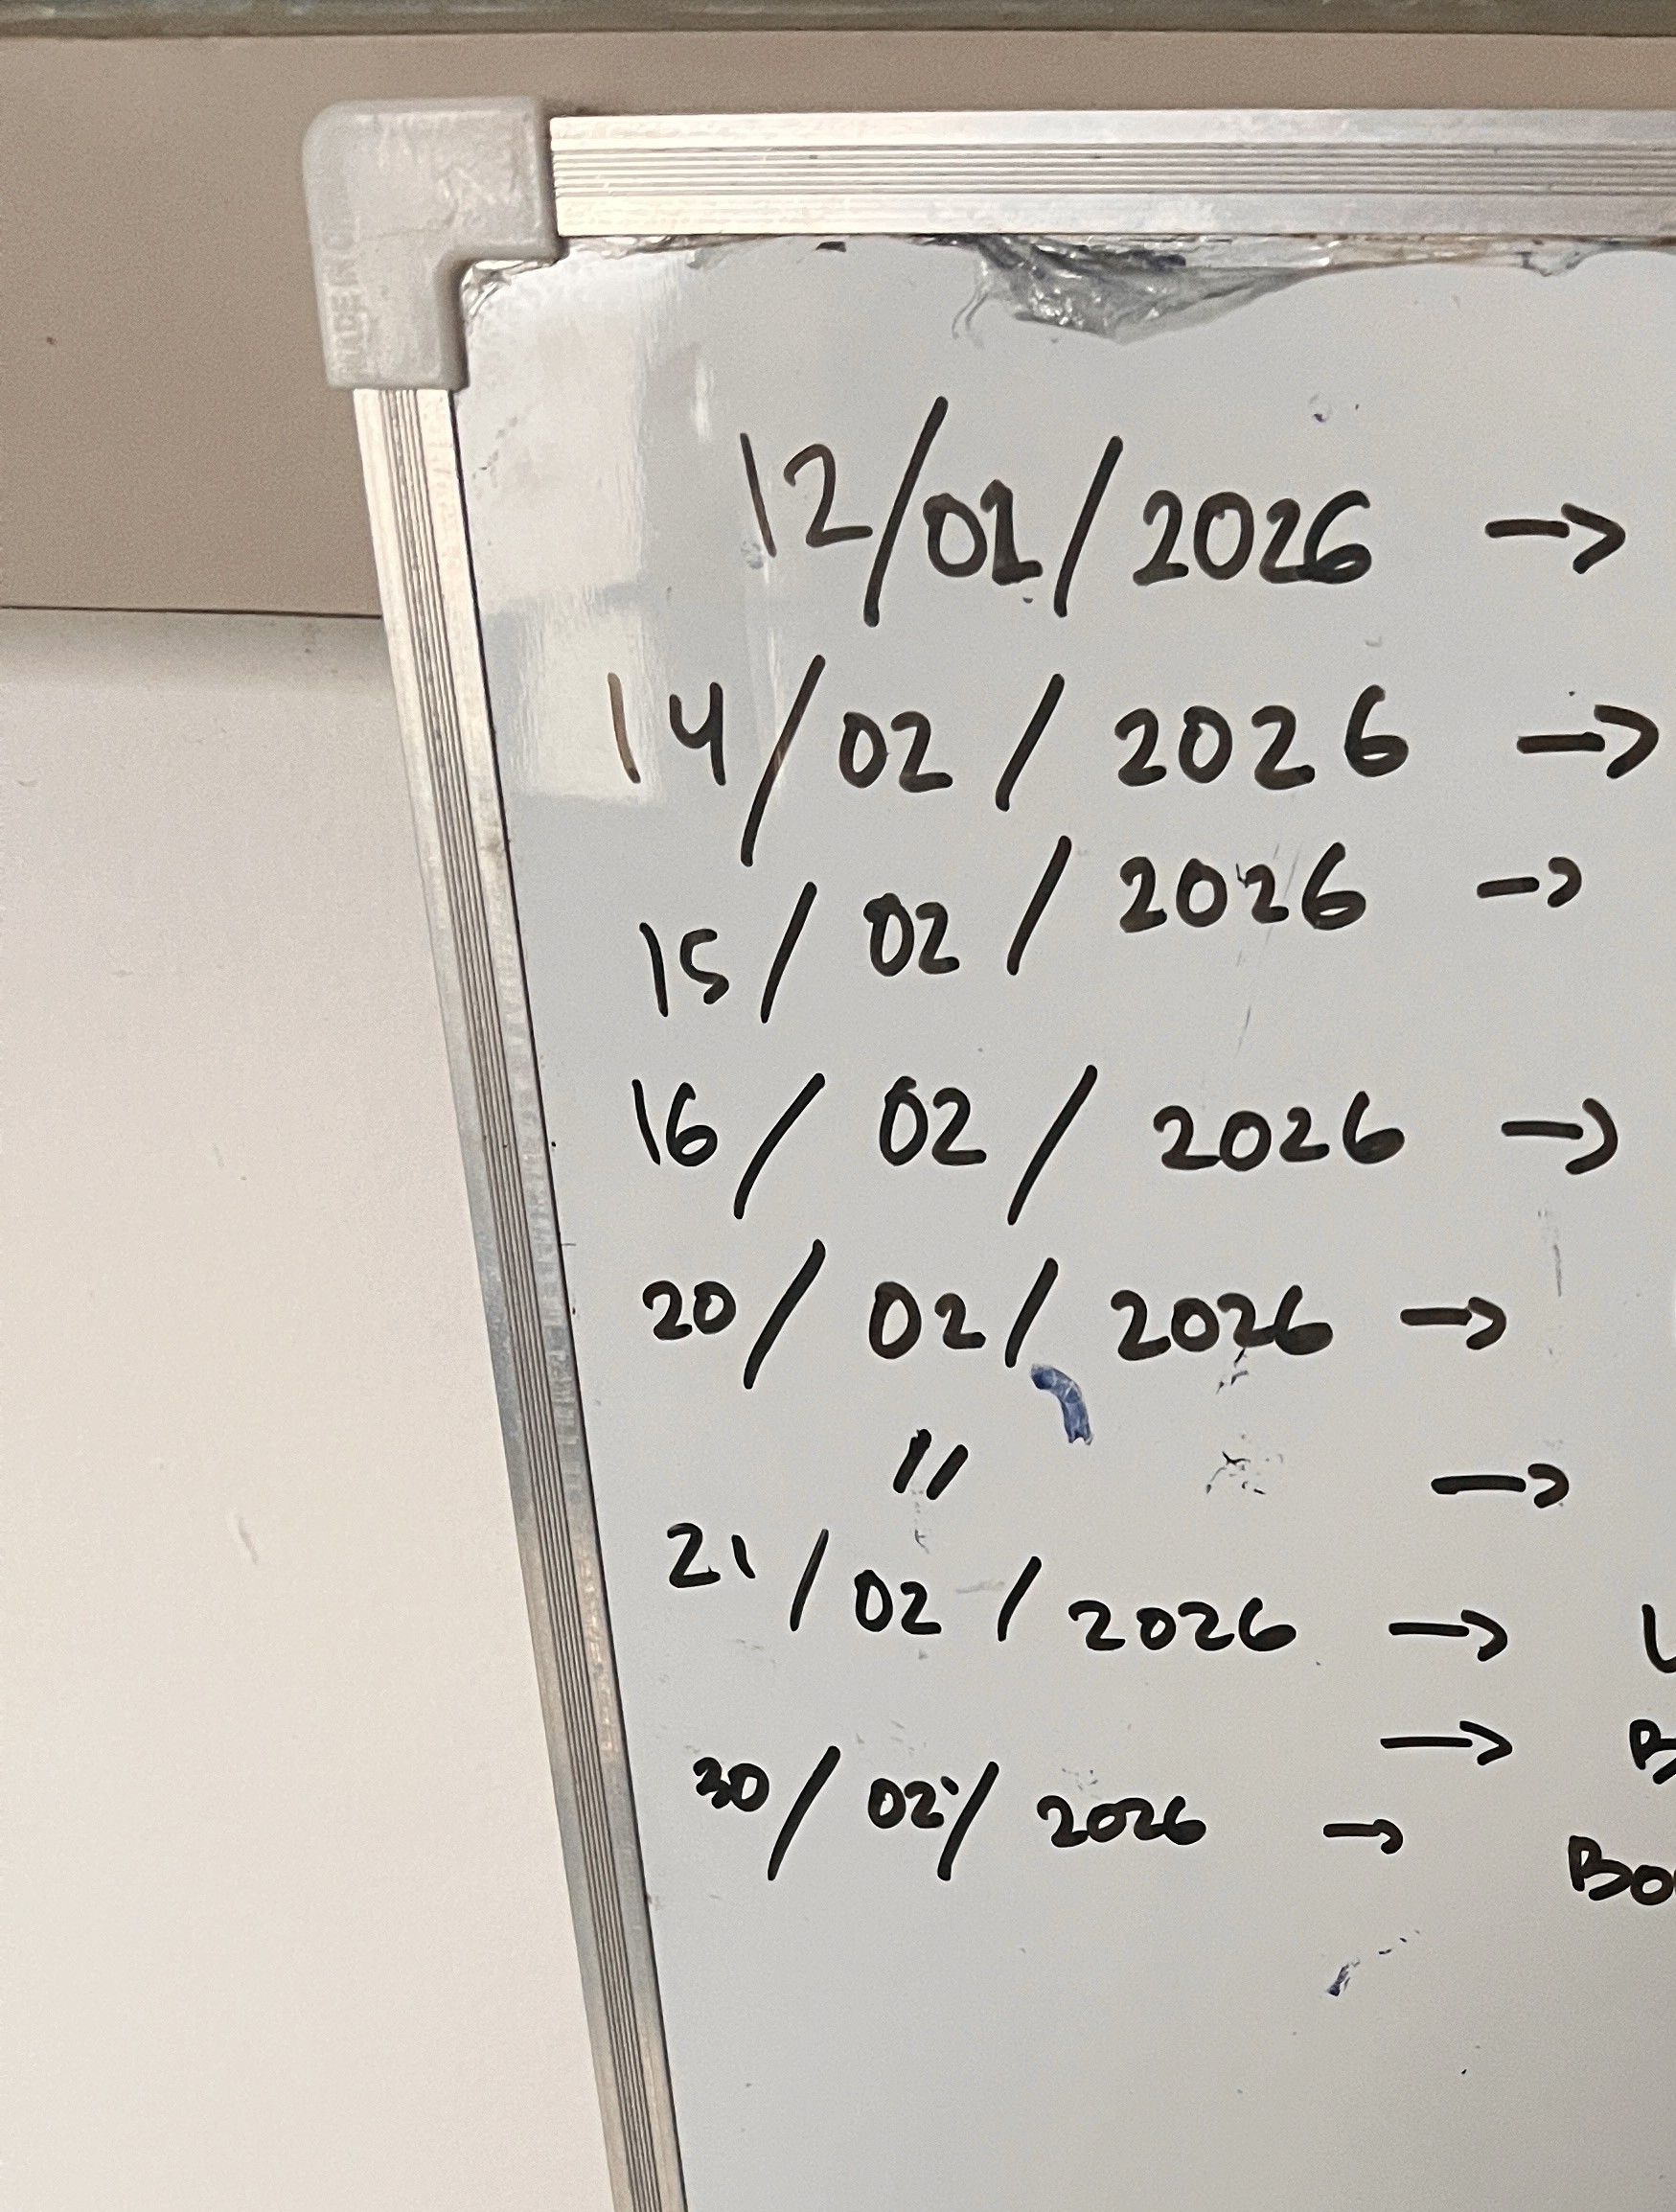 MADE IN C
12/01/2026 →
14/02/2026 →
15/02/2026 →
16/02/2026 →
20/02/2026 →
" →
21/02/2026 →
→ B
30/02/2026 → Bo